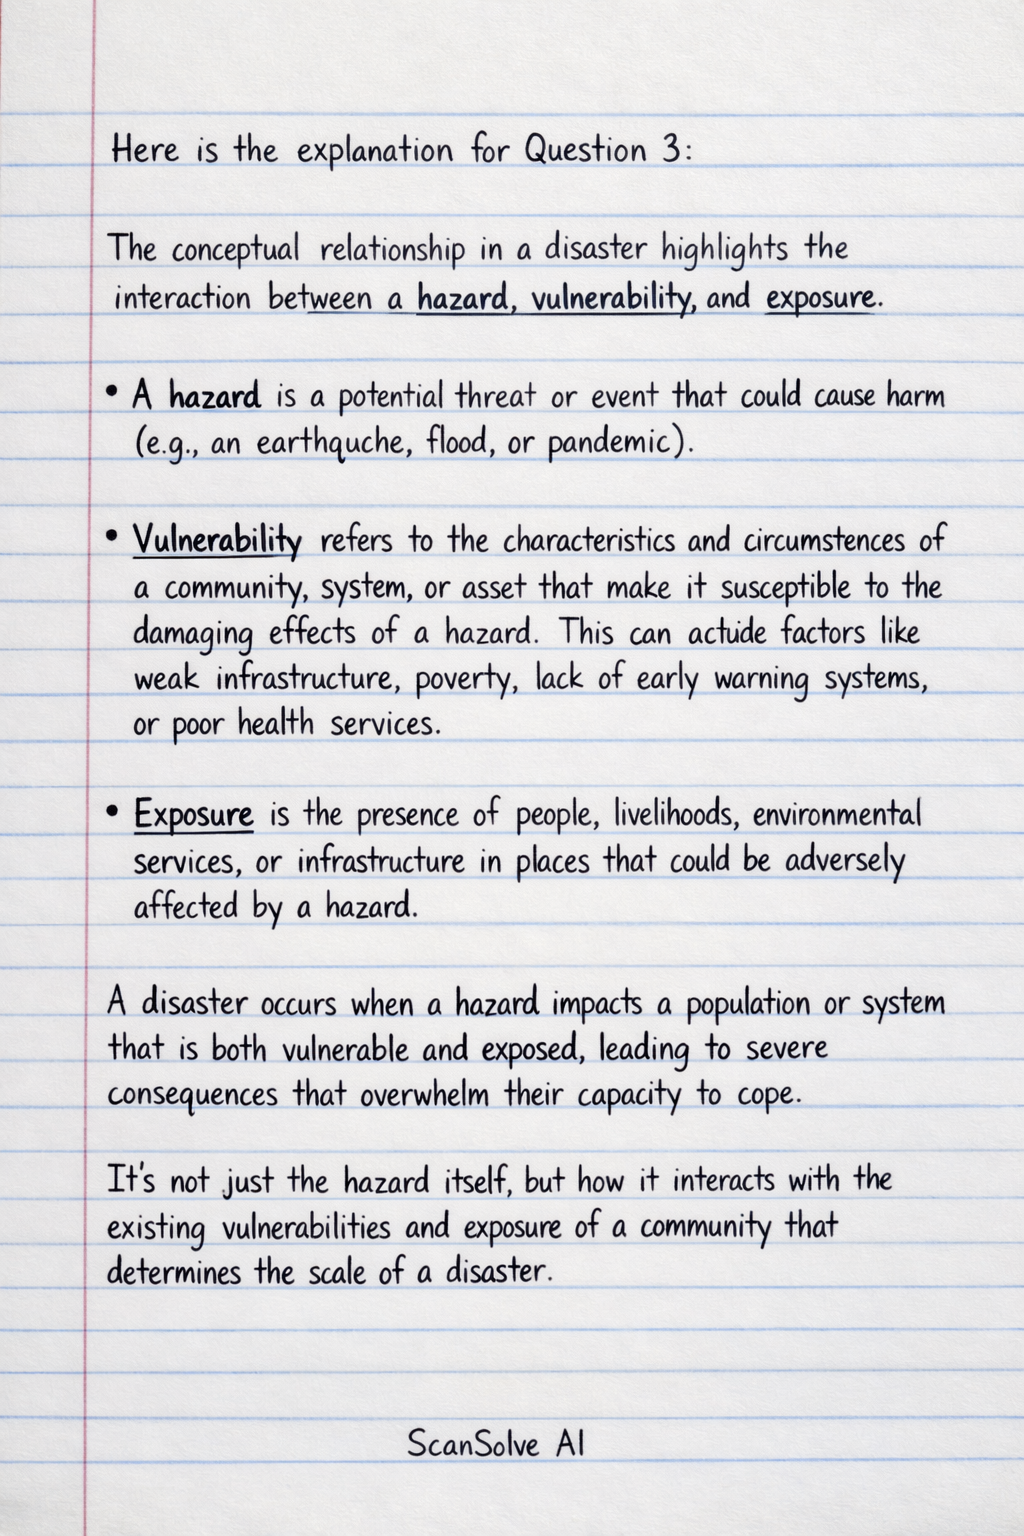 Here is the explanation for Question 3:
The conceptual relationship in a disaster highlights the
interaction between a hazard, vulnerability, and exposure.
• A hazard is a potential threat or event that could cause harm
(e.g., an earthquche, flood, or pandemic).
• Vulnerability refers to the characteristics and circumstences of
a community, system, or asset that make it susceptible to the
damaging effects of a hazard. This can actude factors like
weak infrastructure, poverty, lack of early warning systems,
or poor health services.
• Exposure is the presence of people, livelihoods, environmental
services, or infrastructure in places that could be adversely
affected by a hazard.
A disaster occurs when a hazard impacts a population or system
that is both vulnerable and exposed, leading to severe
consequences that overwhelm their capacity to cope.
It's not just the hazard itself, but how it interacts with the
existing vulnerabilities and exposure of a community that
determines the scale of a disaster.
ScanSolve AI